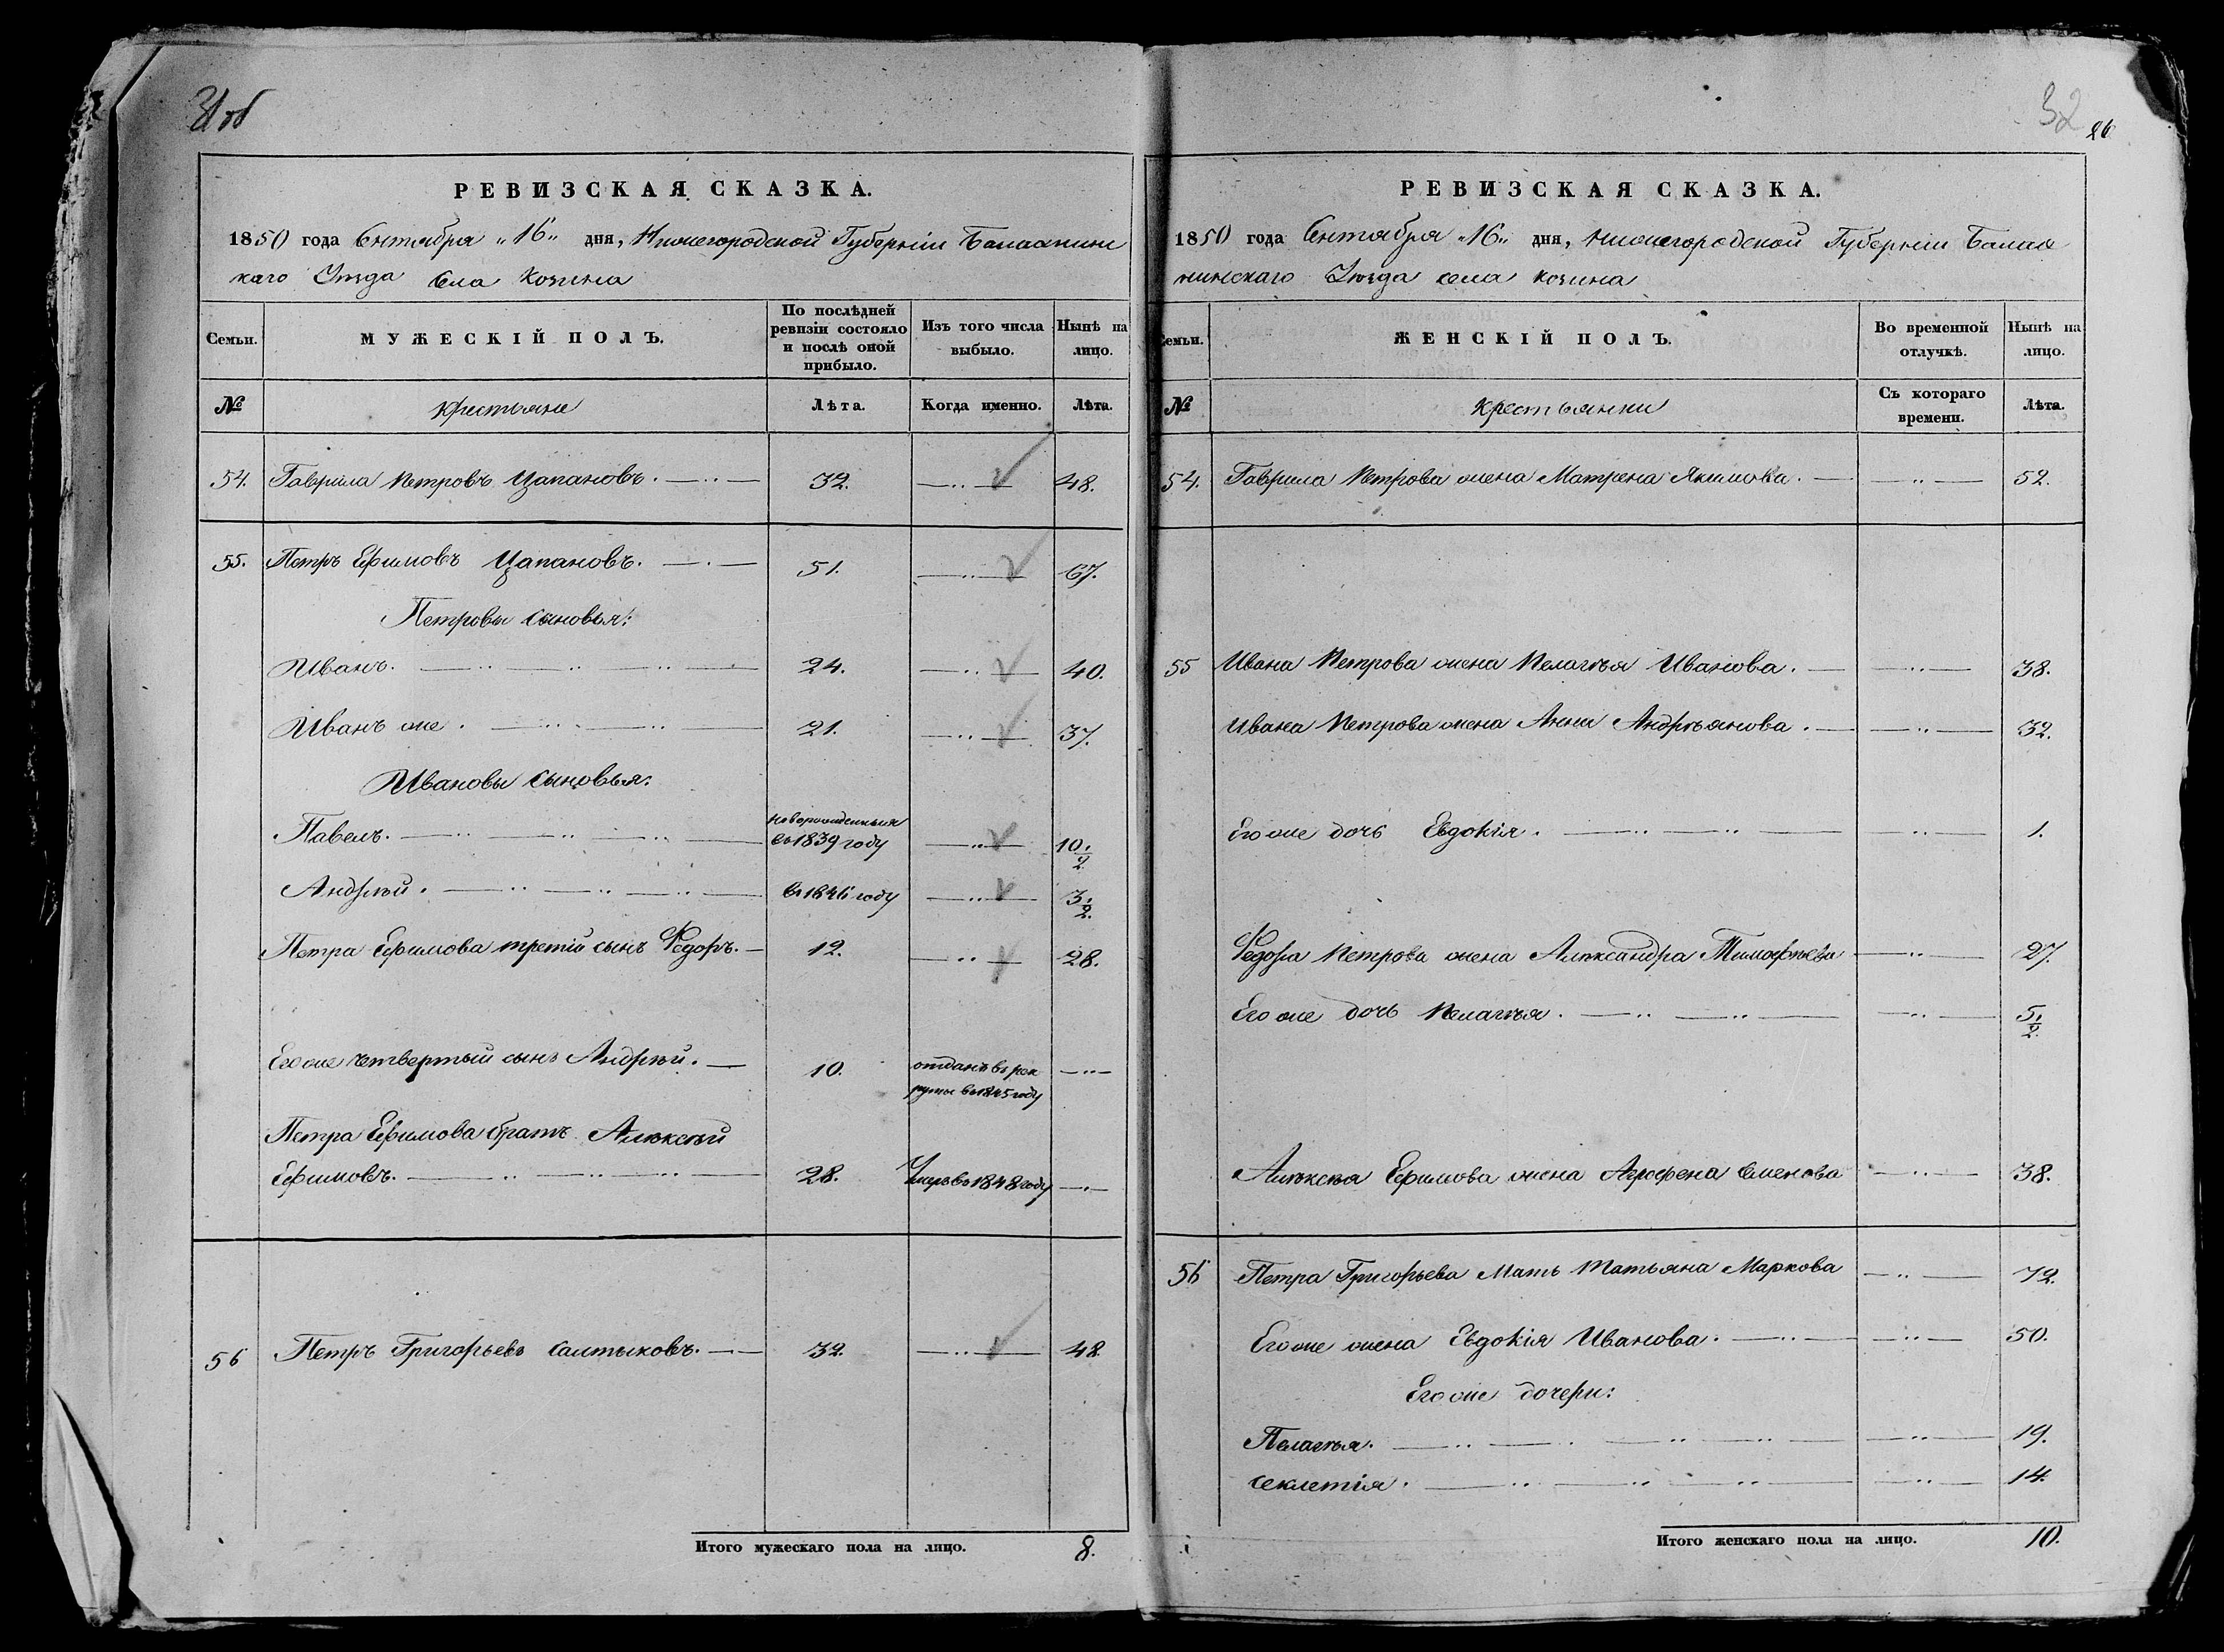 31 об
РЕВИЗСКАЯ СКАЗКА.
1850 года Сентября „16„ дня, Нижегородской Губерніи Балахнинс
каго Уѣзда Села Козина
Семьи.
МУЖЕСКІЙ ПОЛЪ.
По послѣдней ревизіи состояло и послѣ оной прибыло.
Изъ того числа выбыло.
Нынѣ на лицо.
№
Крестьяне
Лѣта.
Когда именно.
Лѣта.
54. Гаврила Петровъ Цапановъ. 32. 48.
55. Петръ Ефимовъ Цапановъ. 51. 67.
Петровы сыновья:
Иванъ. 24. 40.
Иванъ же. 21. 37.
Ивановы сыновья:
Павелъ. новорожденныя въ 1839 году 10 1/2
Андрѣй. въ 1846 году 3 1/2
Петра Ефимова третій сынъ Ѳедоръ. 12. 28.
Его же четвертый сынъ Андрѣй. 10. отданъ въ рек
руты въ 1845 году
Петра Ефимова братъ Алѣксѣй
Ефимовъ. 28. Умеръ въ 1848 году
56 Петръ Григорьевъ Салтыковъ. 32. 48.
Итого мужескаго пола на лицо. 8.
32
26
РЕВИЗСКАЯ СКАЗКА.
1850 года Сентября „16„ дня, Нижегородской Губерніи Балах
нинскаго Уѣзда села Козина
Семьи.
ЖЕНСКІЙ ПОЛЪ.
Во временной отлучкѣ.
Нынѣ на лицо.
№
Крестьянки
Съ котораго времени.
Лѣта.
54. Гаврила Петрова жена Матрена Якимова. 52.
55 Ивана Петрова жена Пелагѣя Иванова. 38.
Ивана Петрова жена Анна Андрѣянова. 32.
Его же дочь Евдокія. 1.
Ѳедора Петрова жена Алѣксандра Тимофѣева 27.
Его же дочь Пелагѣя. 5 1/2
Алѣксѣя Ефимова жена Агрофена Семенова 38.
56 Петра Григорьева Мать Татьяна Маркова 72.
Его же жена Евдокія Иванова. 50.
Его же дочери:
Пелагѣя. 19.
Секлетія. 14.
Итого женскаго пола на лицо. 10.